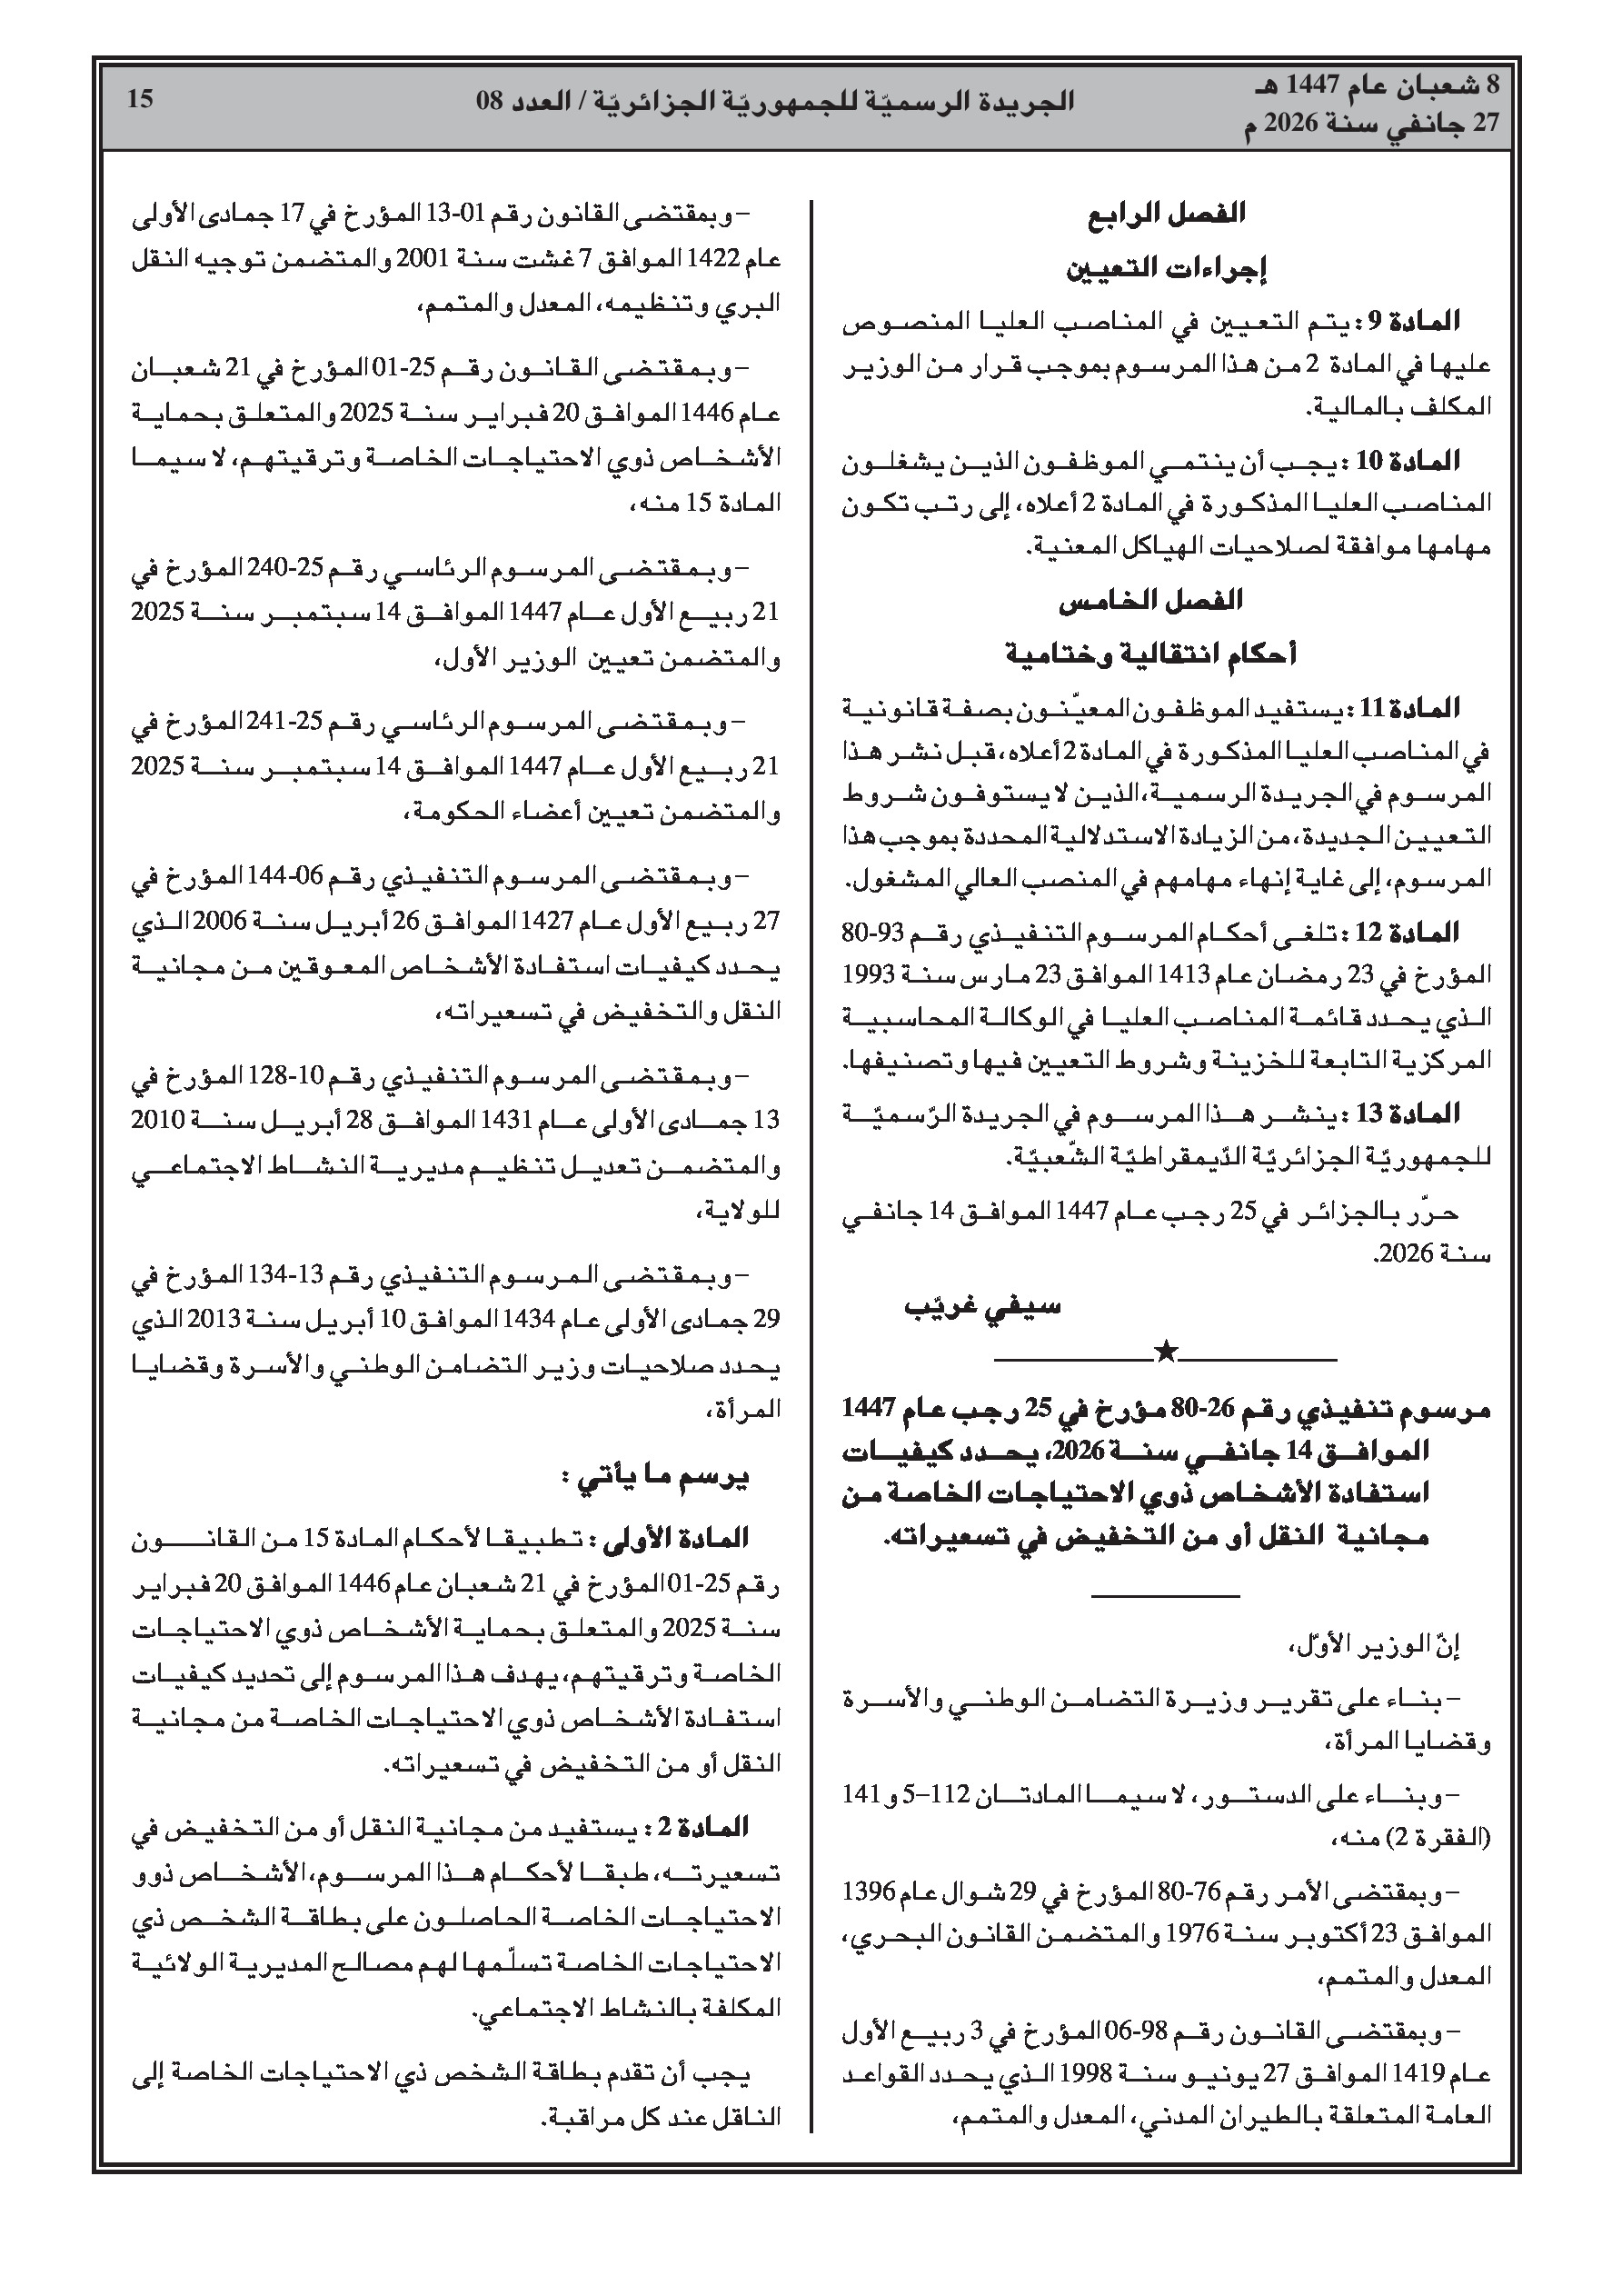 8 شعبان عام 1447 هـ
27 جانفي سنة 2026 م
الجريدة الرسميّة للجمهوريّة الجزائريّة / العدد 08
15
الفصل الرابع
إجراءات التعيين
المادة 9 : يتم التعيين في المناصب العليا المنصوص
عليها في المادة 2 من هذا المرسوم بموجب قرار من الوزير
المكلف بالمالية.
المادة 10 : يجب أن ينتمي الموظفون الذين يشغلون
المناصب العليا المذكورة في المادة 2 أعلاه، إلى رتب تكون
مهامها موافقة لصلاحيات الهياكل المعنية.
الفصل الخامس
أحكام انتقالية وختامية
المادة 11 : يستفيد الموظفون المعيّنون بصفة قانونية
في المناصب العليا المذكورة في المادة 2 أعلاه، قبل نشر هذا
المرسوم في الجريدة الرسمية، الذين لا يستوفون شروط
التعيين الجديدة، من الزيادة الاستدلالية المحددة بموجب هذا
المرسوم، إلى غاية إنهاء مهامهم في المنصب العالي المشغول.
المادة 12 : تلغى أحكام المرسوم التنفيذي رقم 93-80
المؤرخ في 23 رمضان عام 1413 الموافق 23 مارس سنة 1993
الذي يحدد قائمة المناصب العليا في الوكالة المحاسبية
المركزية التابعة للخزينة وشروط التعيين فيها وتصنيفها.
المادة 13 : ينشر هذا المرسوم في الجريدة الرّسميّة
للجمهوريّة الجزائريّة الدّيمقراطيّة الشّعبيّة.
حرّر بالجزائر في 25 رجب عام 1447 الموافق 14 جانفي
سنة 2026.
سيفي غريّب
مرسوم تنفيذي رقم 26-80 مؤرخ في 25 رجب عام 1447
الموافق 14 جانفي سنة 2026، يحدد كيفيات
استفادة الأشخاص ذوي الاحتياجات الخاصة من
مجانية النقل أو من التخفيض في تسعيراته.
إنّ الوزير الأوّل،
– بناء على تقرير وزيرة التضامن الوطني والأسرة
وقضايا المرأة،
– وبناء على الدستور، لا سيما المادتان 112–5 و 141
(الفقرة 2) منه،
– وبمقتضى الأمر رقم 76-80 المؤرخ في 29 شوال عام 1396
الموافق 23 أكتوبر سنة 1976 والمتضمن القانون البحري،
المعدل والمتمم،
– وبمقتضى القانون رقم 98-06 المؤرخ في 3 ربيع الأول
عام 1419 الموافق 27 يونيو سنة 1998 الذي يحدد القواعد
العامة المتعلقة بالطيران المدني، المعدل والمتمم،
– وبمقتضى القانون رقم 01-13 المؤرخ في 17 جمادى الأولى
عام 1422 الموافق 7 غشت سنة 2001 والمتضمن توجيه النقل
البري وتنظيمه، المعدل والمتمم،
– وبمقتضى القانون رقم 25-01 المؤرخ في 21 شعبان
عام 1446 الموافق 20 فبراير سنة 2025 والمتعلق بحماية
الأشخاص ذوي الاحتياجات الخاصة وترقيتهم، لا سيما
المادة 15 منه،
– وبمقتضى المرسوم الرئاسي رقم 25-240 المؤرخ في
21 ربيع الأول عام 1447 الموافق 14 سبتمبر سنة 2025
والمتضمن تعيين الوزير الأول،
– وبمقتضى المرسوم الرئاسي رقم 25-241 المؤرخ في
21 ربيع الأول عام 1447 الموافق 14 سبتمبر سنة 2025
والمتضمن تعيين أعضاء الحكومة،
– وبمقتضى المرسوم التنفيذي رقم 06-144 المؤرخ في
27 ربيع الأول عام 1427 الموافق 26 أبريل سنة 2006 الذي
يحدد كيفيات استفادة الأشخاص المعوقين من مجانية
النقل والتخفيض في تسعيراته،
– وبمقتضى المرسوم التنفيذي رقم 10-128 المؤرخ في
13 جمادى الأولى عام 1431 الموافق 28 أبريل سنة 2010
والمتضمن تعديل تنظيم مديرية النشاط الاجتماعي
للولاية،
– وبمقتضى المرسوم التنفيذي رقم 13-134 المؤرخ في
29 جمادى الأولى عام 1434 الموافق 10 أبريل سنة 2013 الذي
يحدد صلاحيات وزير التضامن الوطني والأسرة وقضايا
المرأة،
يرسم ما يأتي :
المادة الأولى : تطبيقا لأحكام المادة 15 من القانون
رقم 25-01 المؤرخ في 21 شعبان عام 1446 الموافق 20 فبراير
سنة 2025 والمتعلق بحماية الأشخاص ذوي الاحتياجات
الخاصة وترقيتهم، يهدف هذا المرسوم إلى تحديد كيفيات
استفادة الأشخاص ذوي الاحتياجات الخاصة من مجانية
النقل أو من التخفيض في تسعيراته.
المادة 2 : يستفيد من مجانية النقل أو من التخفيض في
تسعيرته، طبقا لأحكام هذا المرسوم، الأشخاص ذوو
الاحتياجات الخاصة الحاصلون على بطاقة الشخص ذي
الاحتياجات الخاصة تسلّمها لهم مصالح المديرية الولائية
المكلفة بالنشاط الاجتماعي.
يجب أن تقدم بطاقة الشخص ذي الاحتياجات الخاصة إلى
الناقل عند كل مراقبة.